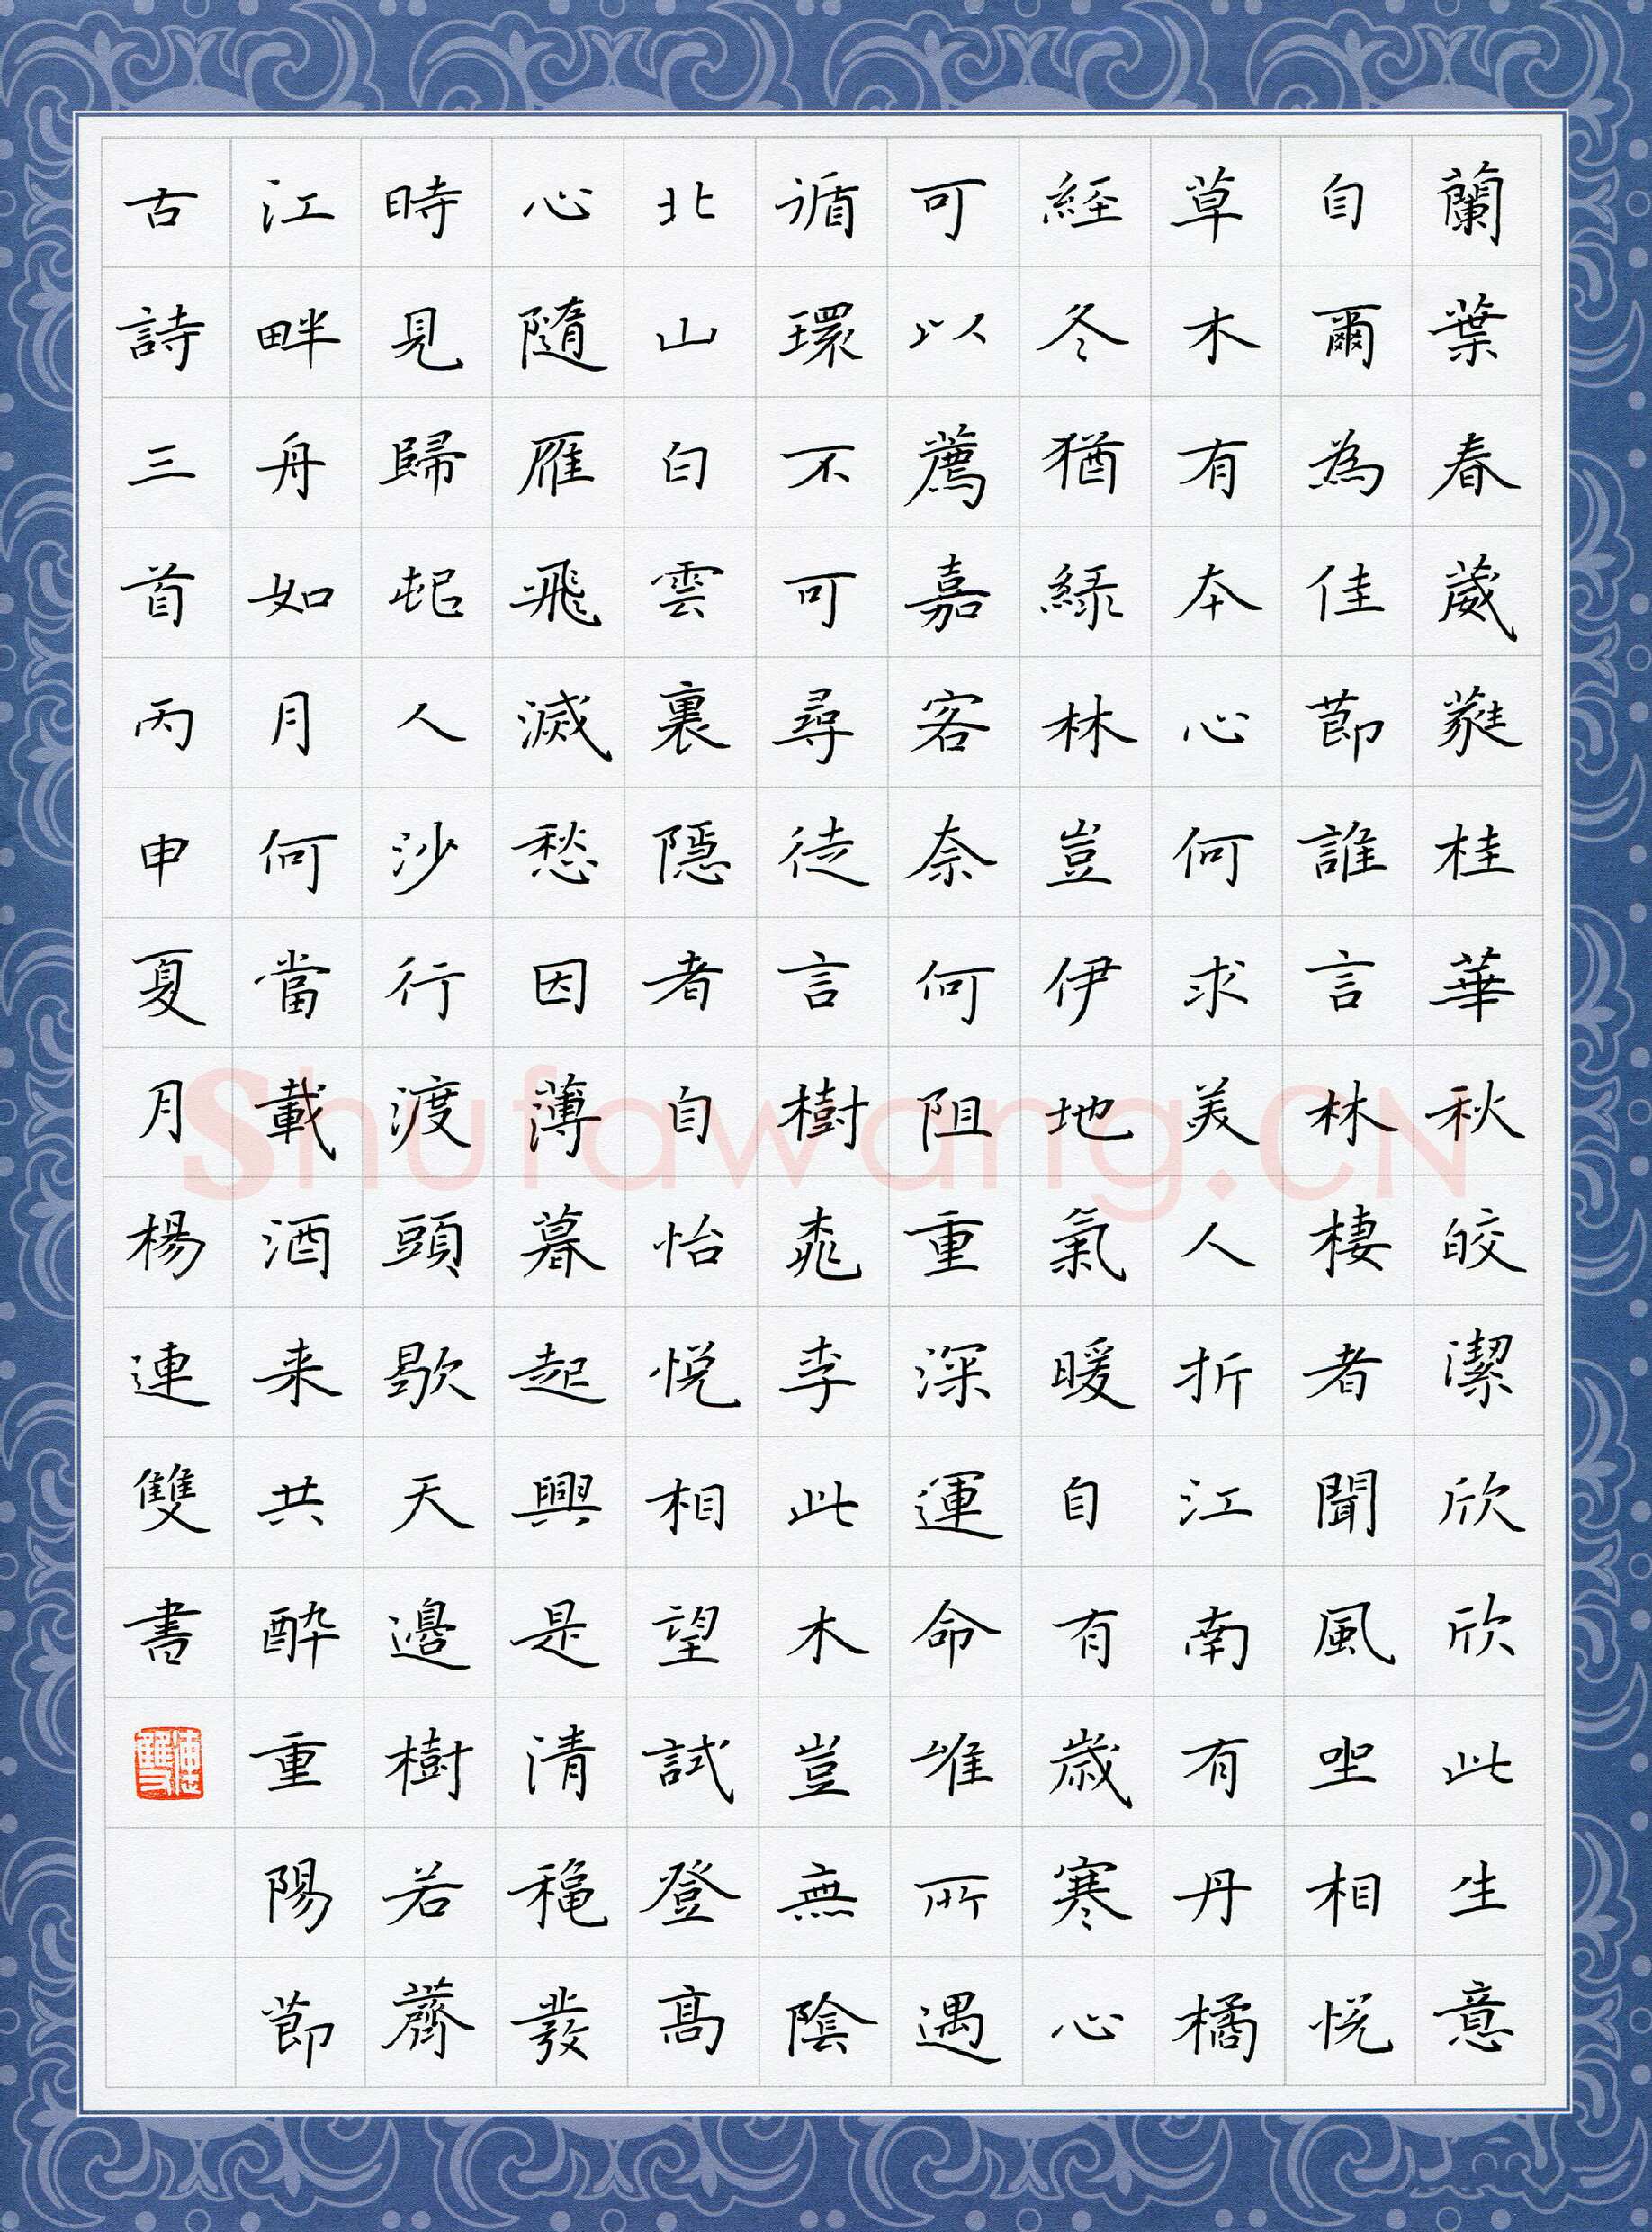 蘭葉春葳蕤桂華秋皎潔欣欣此生意
自爾為佳莭誰言林棲者聞風坐相悅
草木有本心何求美人折江南有丹橘
經冬猶緑林豈伊地氣暖自有歲寒心
可以薦嘉客奈何阻重深運命唯所遇
循環不可尋徒言樹桃李此木豈無陰
北山白雲裏隱者自怡悅相望試登高
心隨雁飛滅愁因薄暮起興是清穐發
時見歸邨人沙行渡頭歇天邊樹若薺
江畔舟如月何當載酒来共酔重陽莭
古詩三首丙申夏月楊連雙書
連雙
Shufawang.CN